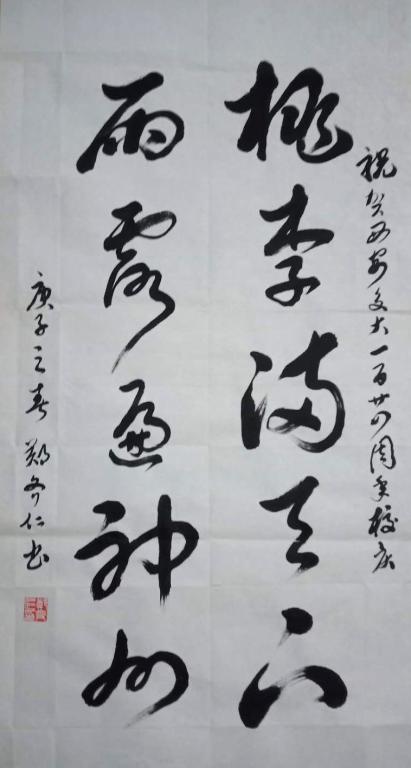 祝贺西安交大一百廿四周年校庆
桃李满天下
雨露遍神州
庚子之春 郑齐仁书